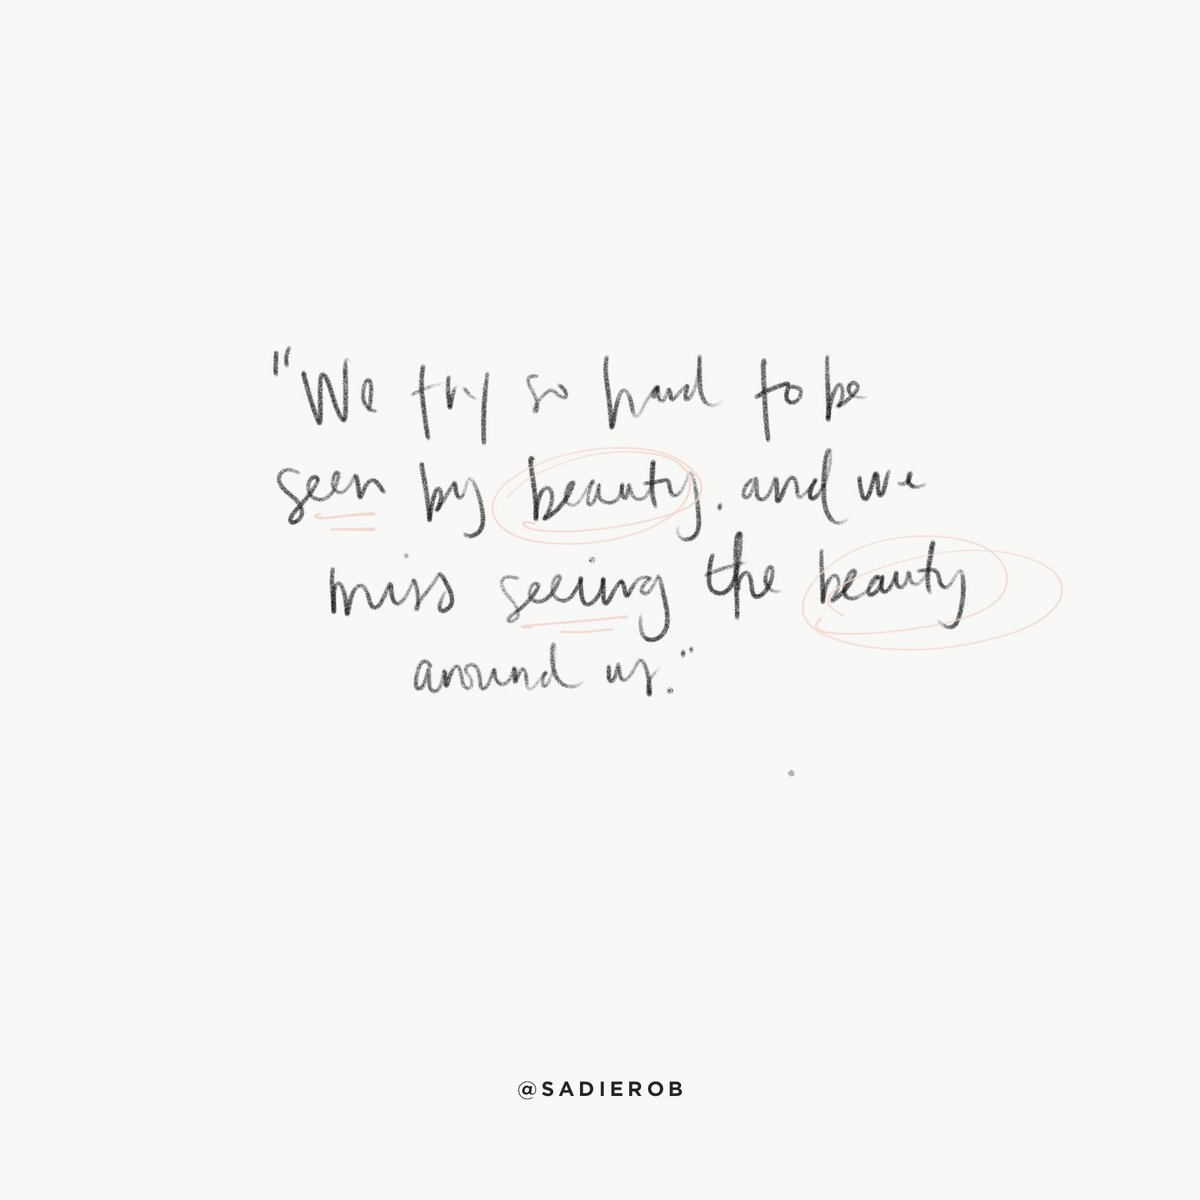 "We try so hard to be
seen by beauty. and we
miss seeing the beauty
around us."
@SADIEROB